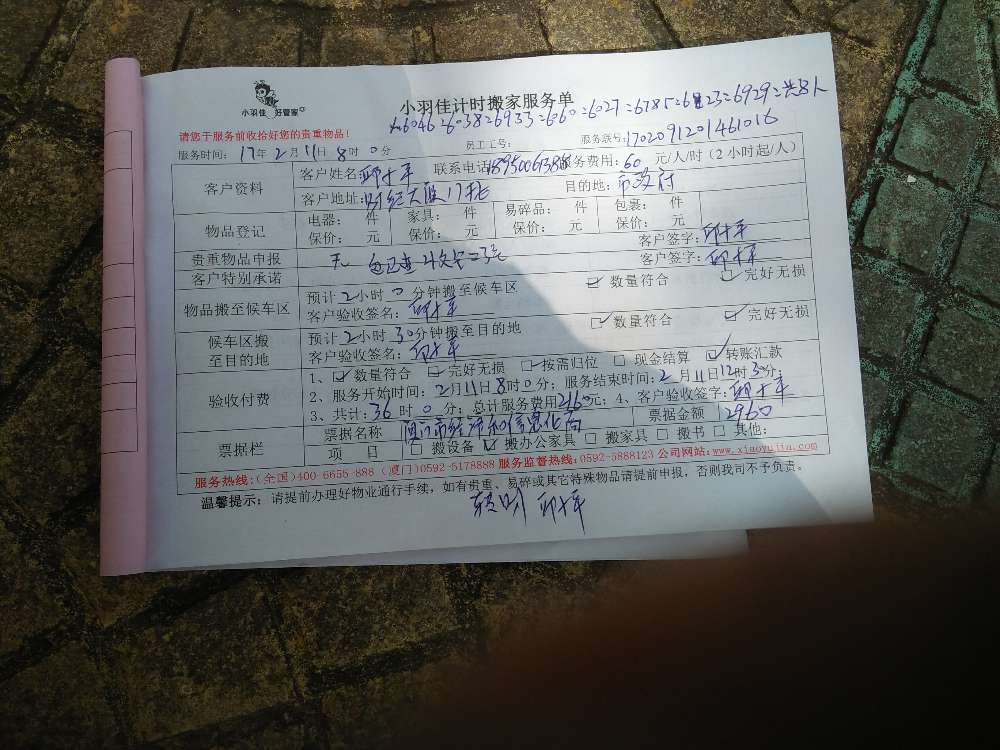 小羽佳 好管家
小羽佳计时搬家服务单
6046=6038=6933=6060=6027=6785=6823=6929=共8人
请您于服务前收拾好您的贵重物品!
服务时间: 17年2月11日8时0分 员工工号: 服务联号: 1702091201461016
客户资料
客户姓名: 联系电话 服务费用: 60 元/人/时(2小时起/人)
客户地址: 财经大厦17楼 目的地: 市政府
物品登记
电器: 件 家具: 件 易碎品: 件 包裹: 件
保价: 元 保价: 元 保价: 元 保价: 元 客户签字:
贵重物品申报 无 客户签字:
客户特别承诺
物品搬至候车区
预计2小时0分钟搬至候车区 数量符合 完好无损
客户验收签名:
候车区搬至目的地
预计2小时30分钟搬至目的地 数量符合 完好无损
客户验收签名:
验收付费
1、数量符合 完好无损 按需归位 现金结算 转账汇款
2、服务开始时间: 2月11日8时0分; 服务结束时间: 2月11日12时30分;
3、共计: 36时0分; 总计服务费用2160元; 4、客户验收签字:
票据栏
票据名称 厦门市经济和信息化局 票据金额 2960
项 目 搬设备 搬办公家具 搬家具 搬书 其他:
服务热线:(全国)400-6656-888 (厦门)0592-5178888 服务监督热线:0592-5888123 公司网站:www.xiaoyujia.com
温馨提示: 请提前办理好物业通行手续,如有贵重、易碎或其它特殊物品请提前申报,否则我司不予负责。